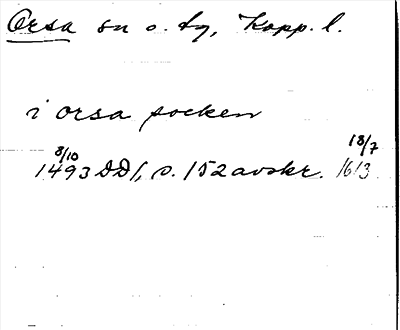 Orsa sn o. tg, Kopp. l.
i orsa socken
8/10 18/7
1493 DD 1, s. 152 avskr. 1613